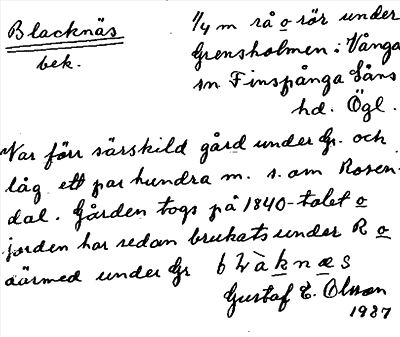 Blacknäs
bek.
1/4 m rå o rör under
Grensholmen i Vånga
sn Finspånga läns
hd. Ögl.
Var förr särskild gård under Gr. och
låg ett par hundra m. s. om Rosen-
dal. Gården togs på 1840-talet o
jorden har sedan brukats under R o
därmed under Gr
Gustaf E. Olsson
1937